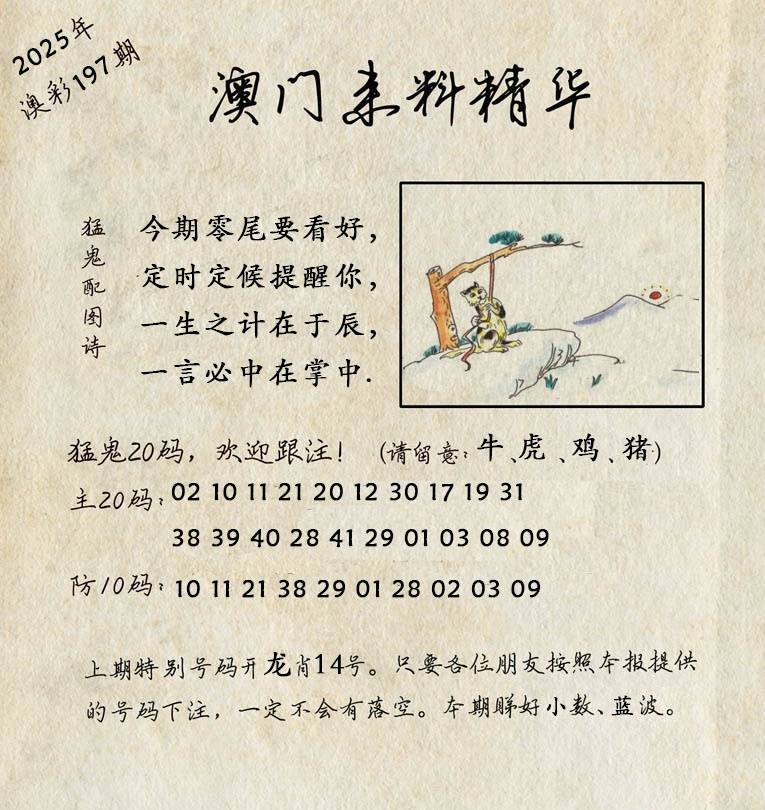 2025年
澳彩197期
澳门来料精华
猛鬼配图诗
今期零尾要看好，
定时定候提醒你，
一生之计在于辰，
一言必中在掌中.
猛鬼20码，欢迎跟注！（请留意：牛、虎、鸡、猪）
主20码：02 10 11 21 20 12 30 17 19 31
38 39 40 28 41 29 01 03 08 09
防10码：10 11 21 38 29 01 28 02 03 09
上期特别号码开龙肖14号。只要各位朋友按照本报提供
的号码下注，一定不会有落空。本期睇好小数、蓝波。